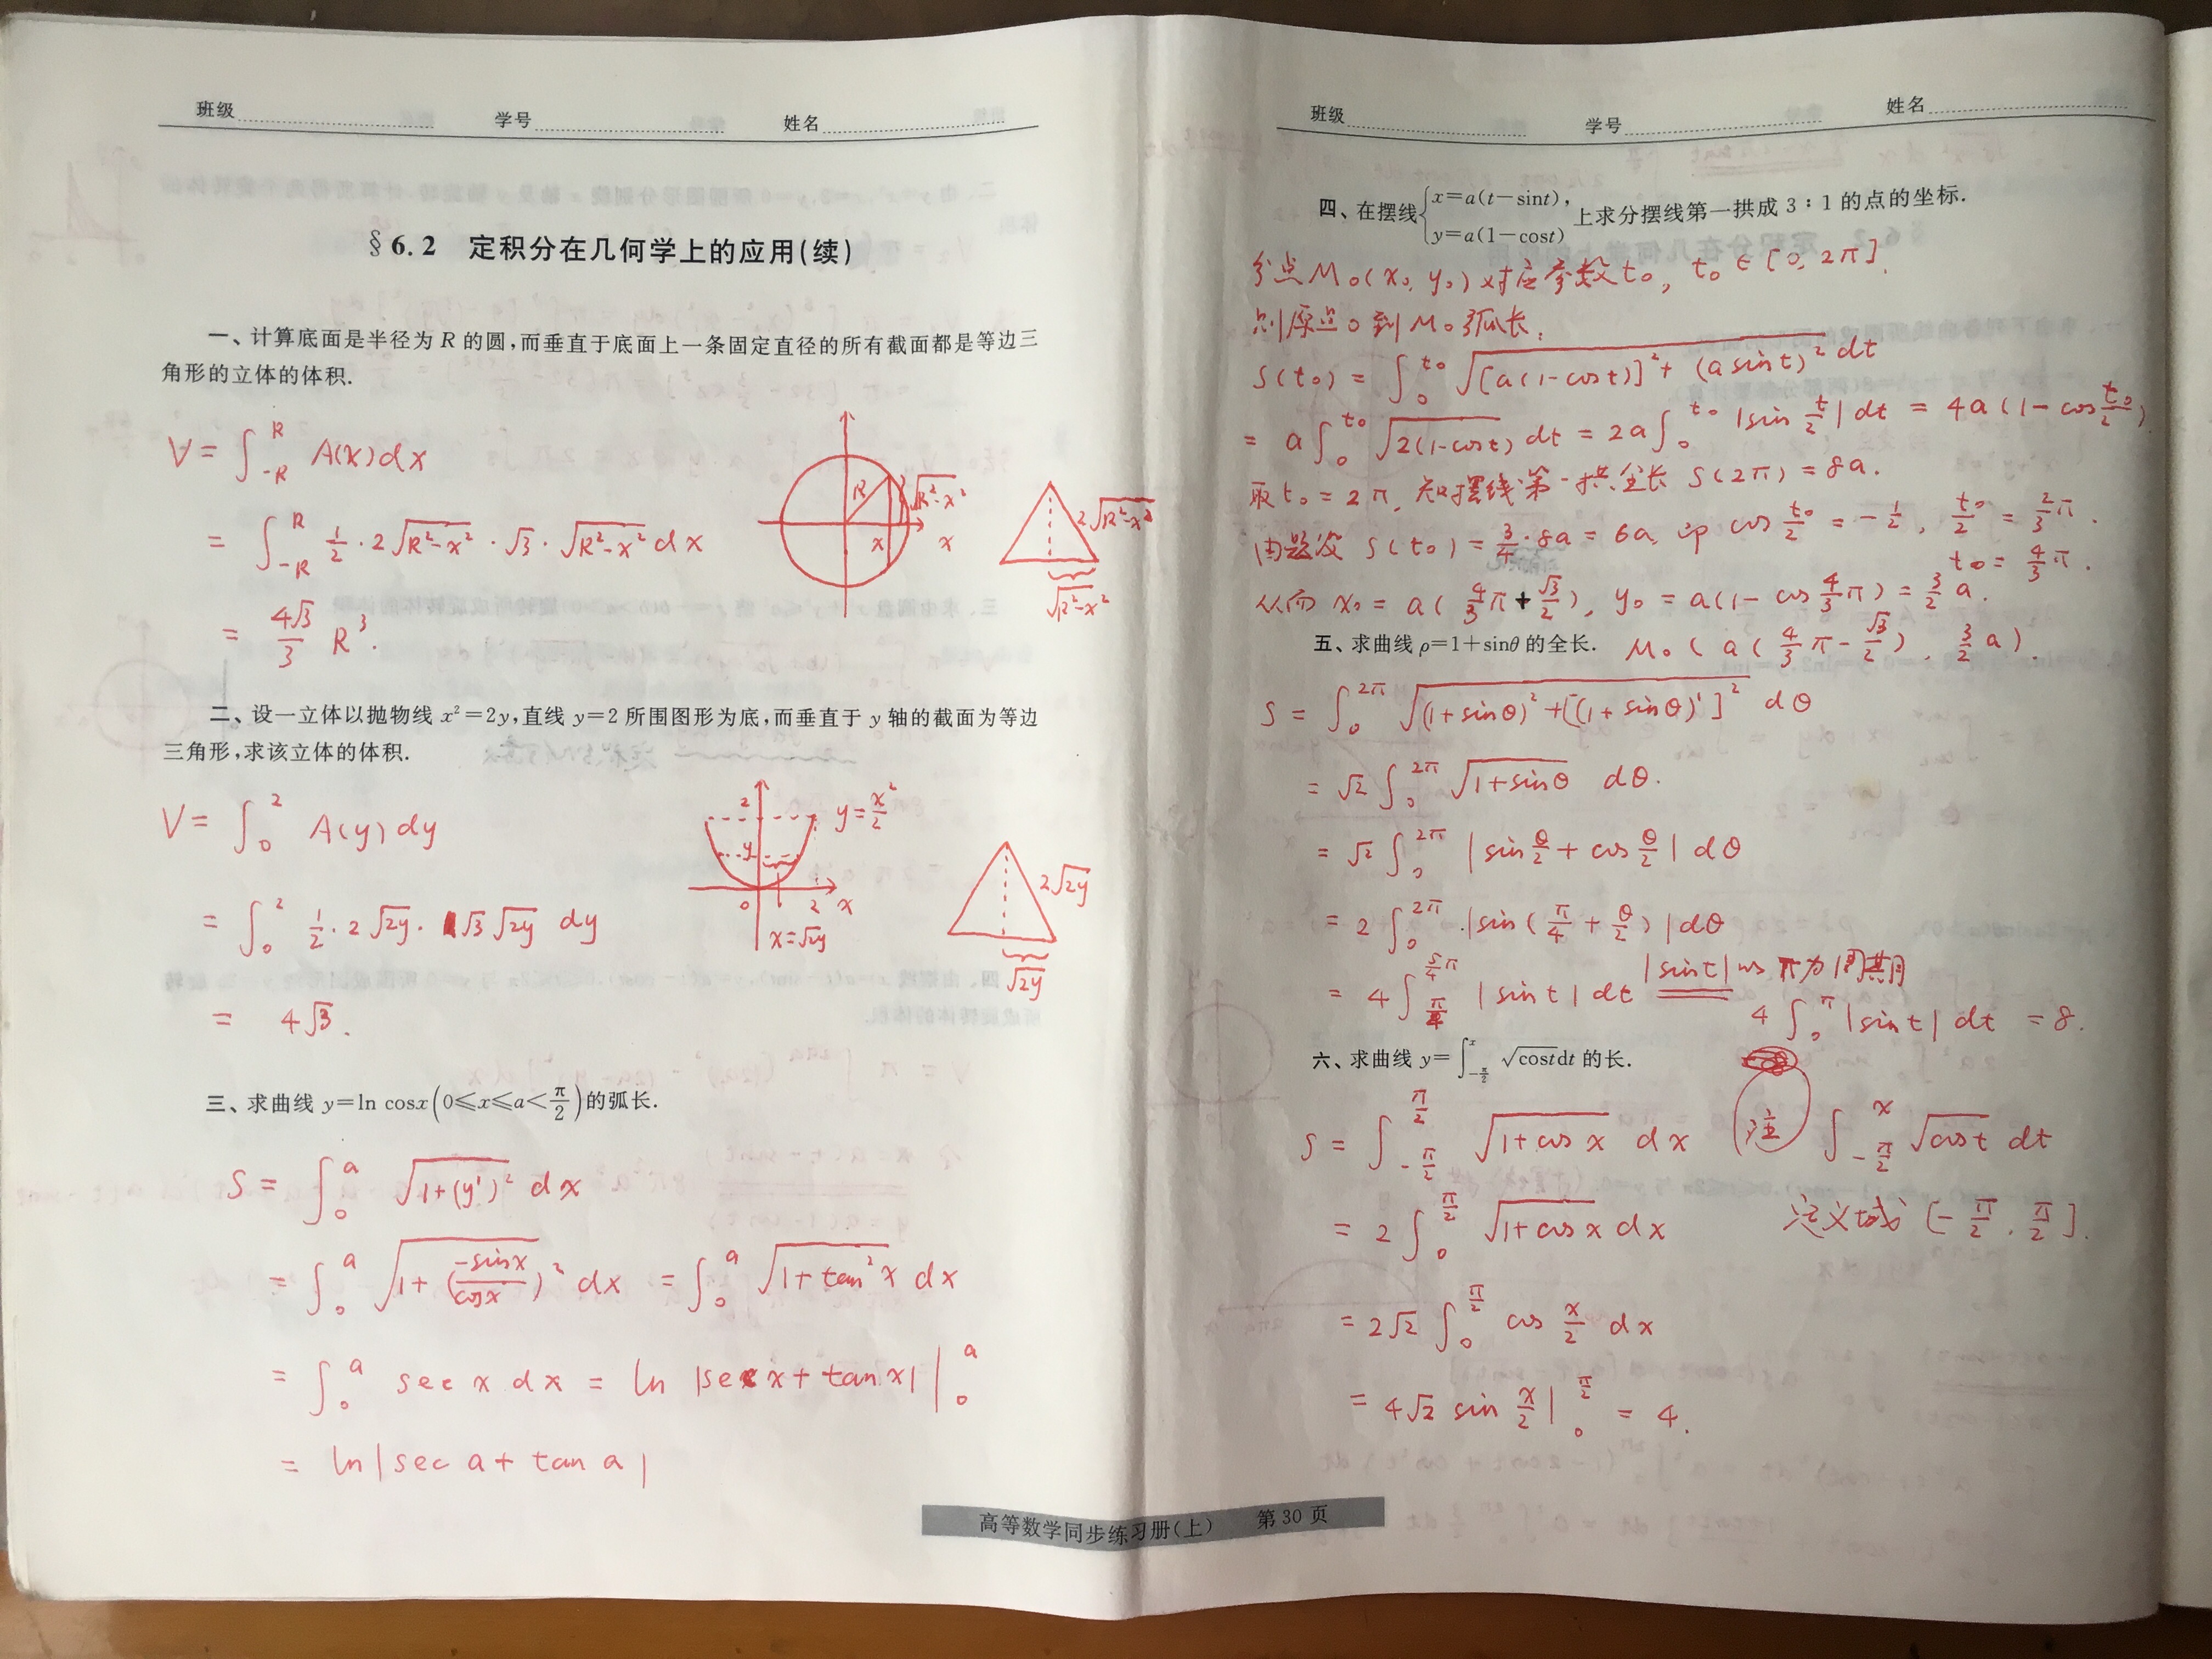 班级 学号 姓名
§6.2 定积分在几何学上的应用(续)
一、计算底面是半径为 R 的圆,而垂直于底面上一条固定直径的所有截面都是等边三
角形的立体的体积.
V = ∫_{-R}^{R} A(x)dx
= ∫_{-R}^{R} 1/2 · 2√(R²-x²) · √3 · √(R²-x²) dx
= 4√3/3 R³.
R √(R²-x²) x x
2√(R²-x²)
√(R²-x²)
二、设一立体以抛物线 x²=2y,直线 y=2 所围图形为底,而垂直于 y 轴的截面为等边
三角形,求该立体的体积.
V = ∫_0^2 A(y)dy
= ∫_0^2 1/2 · 2√(2y) · √3 √(2y) dy
= 4√3.
2 y=x²/2
y
0 2 x
x=√(2y)
2√(2y)
√(2y)
三、求曲线 y=ln cosx(0≤x≤a<π/2)的弧长.
S = ∫_0^a √(1+(y')²) dx
= ∫_0^a √(1+(-sinx/cosx)²) dx = ∫_0^a √(1+tan²x) dx
= ∫_0^a sec x dx = ln |sec x + tan x| |_0^a
= ln|sec a + tan a|
班级 学号 姓名
四、在摆线{x=a(t-sint), y=a(1-cost) 上求分摆线第一拱成 3∶1 的点的坐标.
分点 M₀(x₀, y₀) 对应参数 t₀, t₀∈[0, 2π].
则原点 0 到 M₀ 弧长:
S(t₀) = ∫_0^{t₀} √([a(1-cost)]² + (a sint)²) dt
= a∫_0^{t₀} √(2(1-cost)) dt = 2a∫_0^{t₀} |sin t/2| dt = 4a(1-cos t₀/2)
取 t₀ = 2π, 知摆线第一拱全长 S(2π) = 8a.
由题设 S(t₀) = 3/4·8a = 6a, 即 cos t₀/2 = -1/2, t₀/2 = 2/3 π.
t₀ = 4/3 π.
从而 x₀ = a(4/3 π + √3/2), y₀ = a(1-cos 4/3 π) = 3/2 a.
五、求曲线 ρ=1+sinθ 的全长. M₀(a(4/3 π - √3/2), 3/2 a).
S = ∫_0^{2π} √((1+sinθ)² + [(1+sinθ)']²) dθ
= √2 ∫_0^{2π} √(1+sinθ) dθ.
= √2 ∫_0^{2π} |sin θ/2 + cos θ/2| dθ
= 2∫_0^{2π} |sin(π/4 + θ/2)| dθ
= 4∫_{π/4}^{5/4 π} |sin t| dt |sint| 以 π 为周期
4∫_0^π |sint| dt = 8.
六、求曲线 y=∫_{-π/2}^x √cost dt 的长.
S = ∫_{-π/2}^{π/2} √(1+cos x) dx 注 ∫_{-π/2}^x √cost dt
= 2∫_0^{π/2} √(1+cos x) dx 定义域 [-π/2, π/2].
= 2√2 ∫_0^{π/2} cos x/2 dx
= 4√2 sin x/2 |_0^{π/2} = 4.
高等数学同步练习册(上) 第 30 页